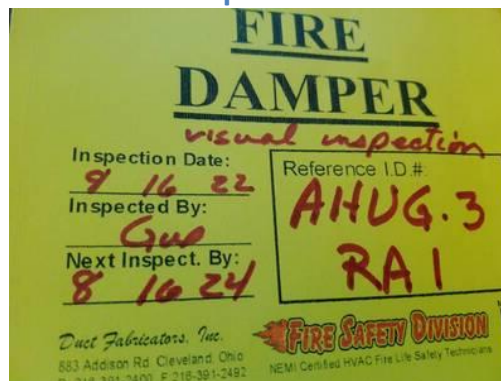 FIRE
DAMPER
visual inspection
Inspection Date:
9 16 22
Inspected By:
Gus
Next Inspect. By:
8 16 24
Reference I.D.#:
AHUG.3
RA 1
Duct Fabricators, Inc.
883 Addison Rd. Cleveland, Ohio
216-391-2400 F 216-391-2492
FIRE SAFETY DIVISION
NEMI Certified HVAC Fire Life Safety Technicians